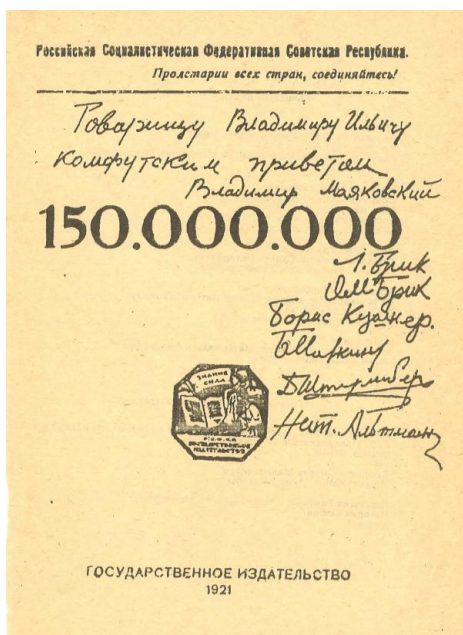 Российская Социалистическая Федеративная Советская Республика.
Пролетарии всех стран, соединяйтесь!
Товарищу Владимиру Ильичу
комфутским приветом
Владимир Маяковский
150.000.000
Л. Брик
О.М. Брик
Борис Кушнер.
БМалкин
ДШтеренберг
Нат. Альтман
ЗНАНИЕ
СИЛА
Р.С.Ф.С.Р.
ГОСУДАРСТВЕННОЕ
ИЗДАТЕЛЬСТВО
ГОСУДАРСТВЕННОЕ ИЗДАТЕЛЬСТВО
1921